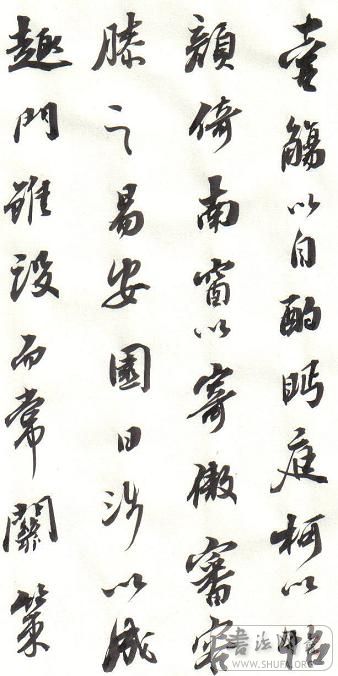 壶觴以自酌眄庭柯以怡
顔倚南窗以寄傲審容
膝之易安園日涉以成
趣門雖設而常關策
書法图
WWW.SHUFA.ORG